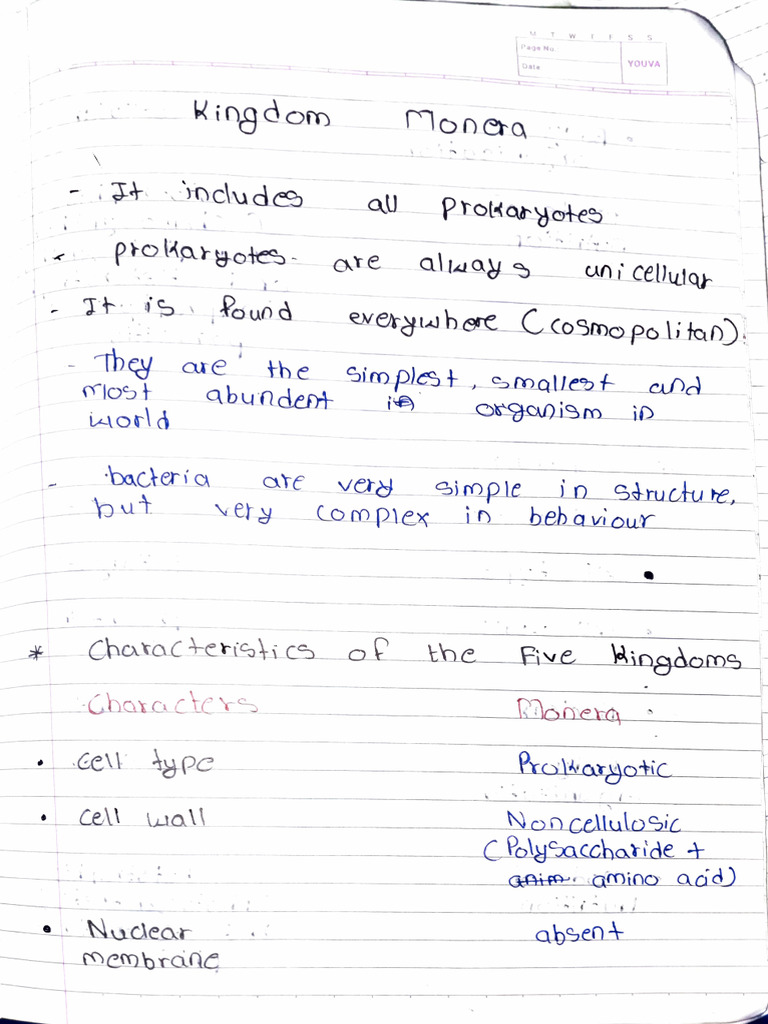 M T W T F S S
Page No.
Date
YOUVA
Kingdom Monera
- It includes all prokaryotes.
- prokaryotes are always unicellular
- It is found everywhere (cosmopolitan).
- They are the simplest, smallest and
most abundent in organism in
world
- bacteria are very simple in structure,
but very complex in behaviour
* Characteristics of the Five Kingdoms
Characters Monera
• cell type Prokaryotic
• cell wall Noncellulosic
(Polysaccharide +
anim. amino acid)
• Nuclear absent
membrane